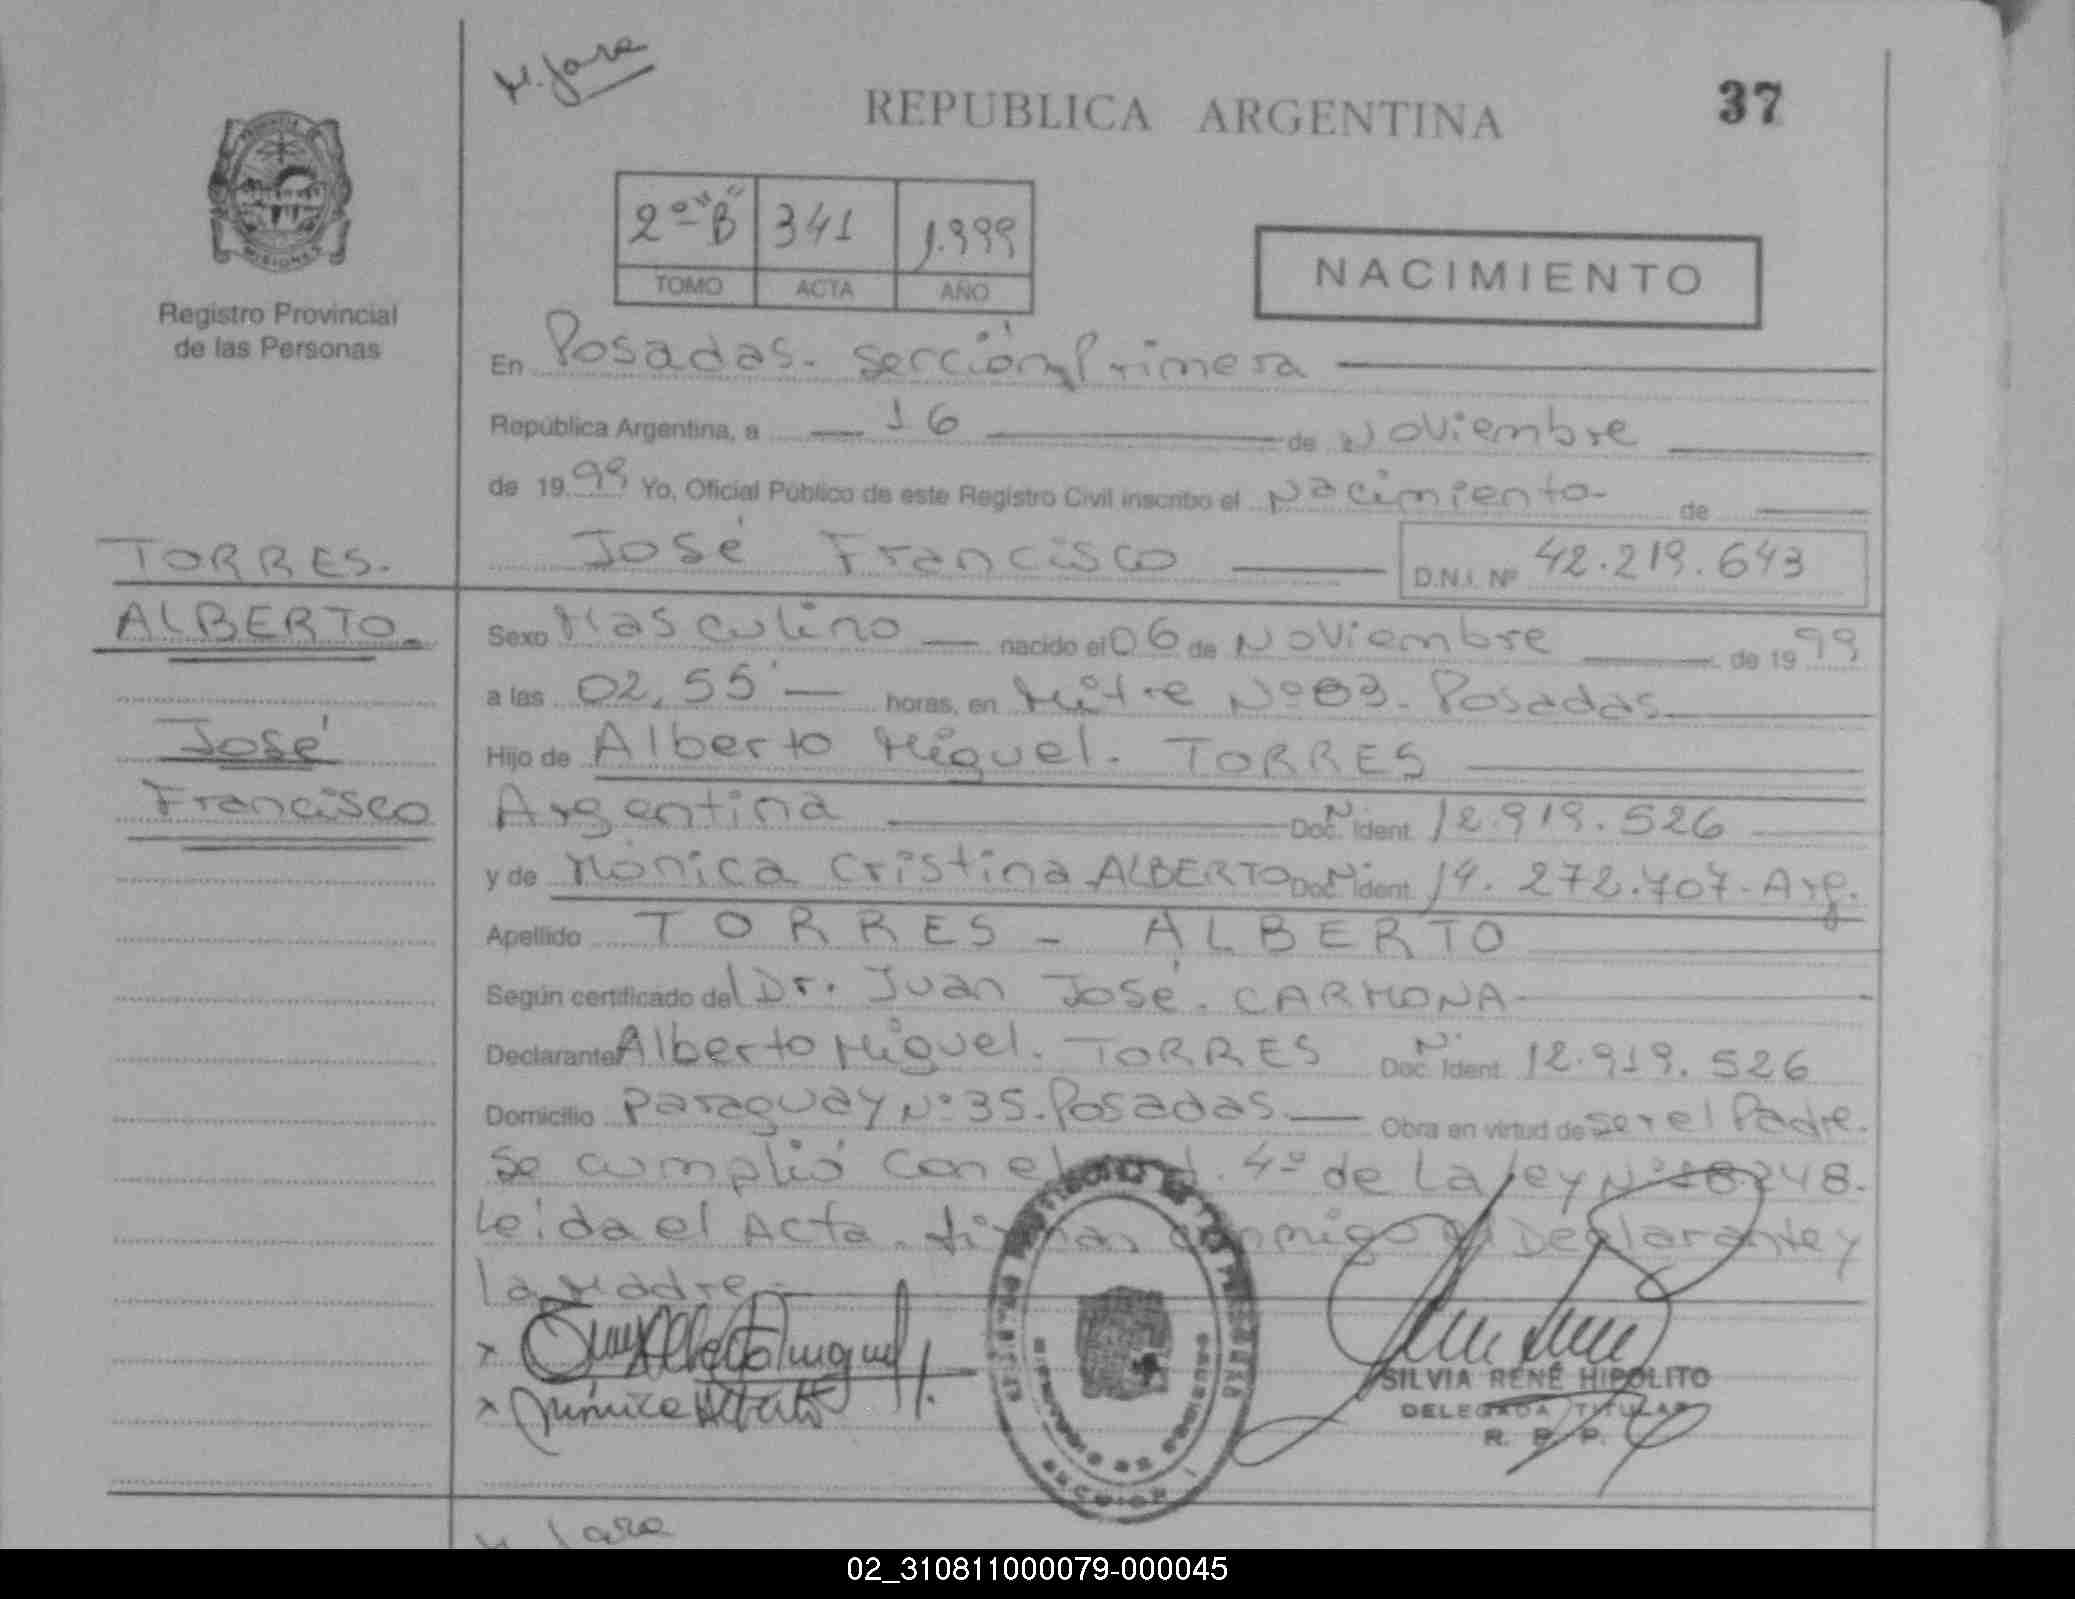 M. Jara
REPUBLICA ARGENTINA
37
PROVINCIA
MISIONES
Registro Provincial
de las Personas
2º "B" 341 1.999
TOMO ACTA AÑO
NACIMIENTO
En Posadas. sección Primera
República Argentina, a 16 de Noviembre
de 1999 Yo, Oficial Público de este Registro Civil inscribo el Nacimiento de
TORRES. José Francisco D.N.I. Nº 42.219.643
ALBERTO. Sexo Masculino nacido el 06 de Noviembre de 1999
a las 02,55' horas, en Mitre Nº 83. Posadas
José Hijo de Alberto Miguel. TORRES
Francisco Argentina Doc. N. Ident. 12.919.526
y de Mónica Cristina ALBERTO Doc. N. Ident. 14.272.707. Arg.
Apellido TORRES - ALBERTO
Según certificado del Dr. Juan José. CARMONA
Declarante Alberto Miguel. TORRES Doc. N. Ident. 12.919.526
Domicilio Paraguay Nº 35. Posadas Obra en virtud de ser el Padre.
se cumplió con el 4º de La Ley Nº 18248.
Leída el Acta. firman conmigo el Declarante y
La Madre
Alberto Miguel
Mónica Alberto
SILVIA RENÉ HIPOLITO
DELEGADA TITULAR
R. P. P.
SECCION
Jara
02_310811000079-000045